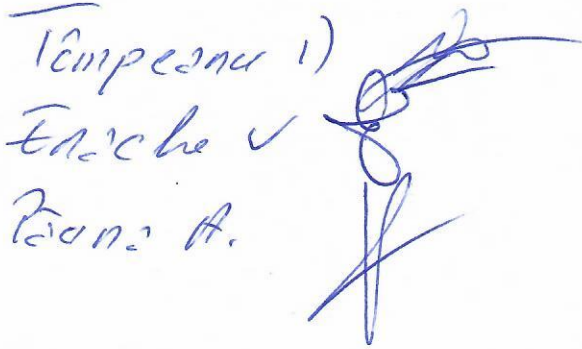 Tâmpeanu D
Enache V
Păuna A.